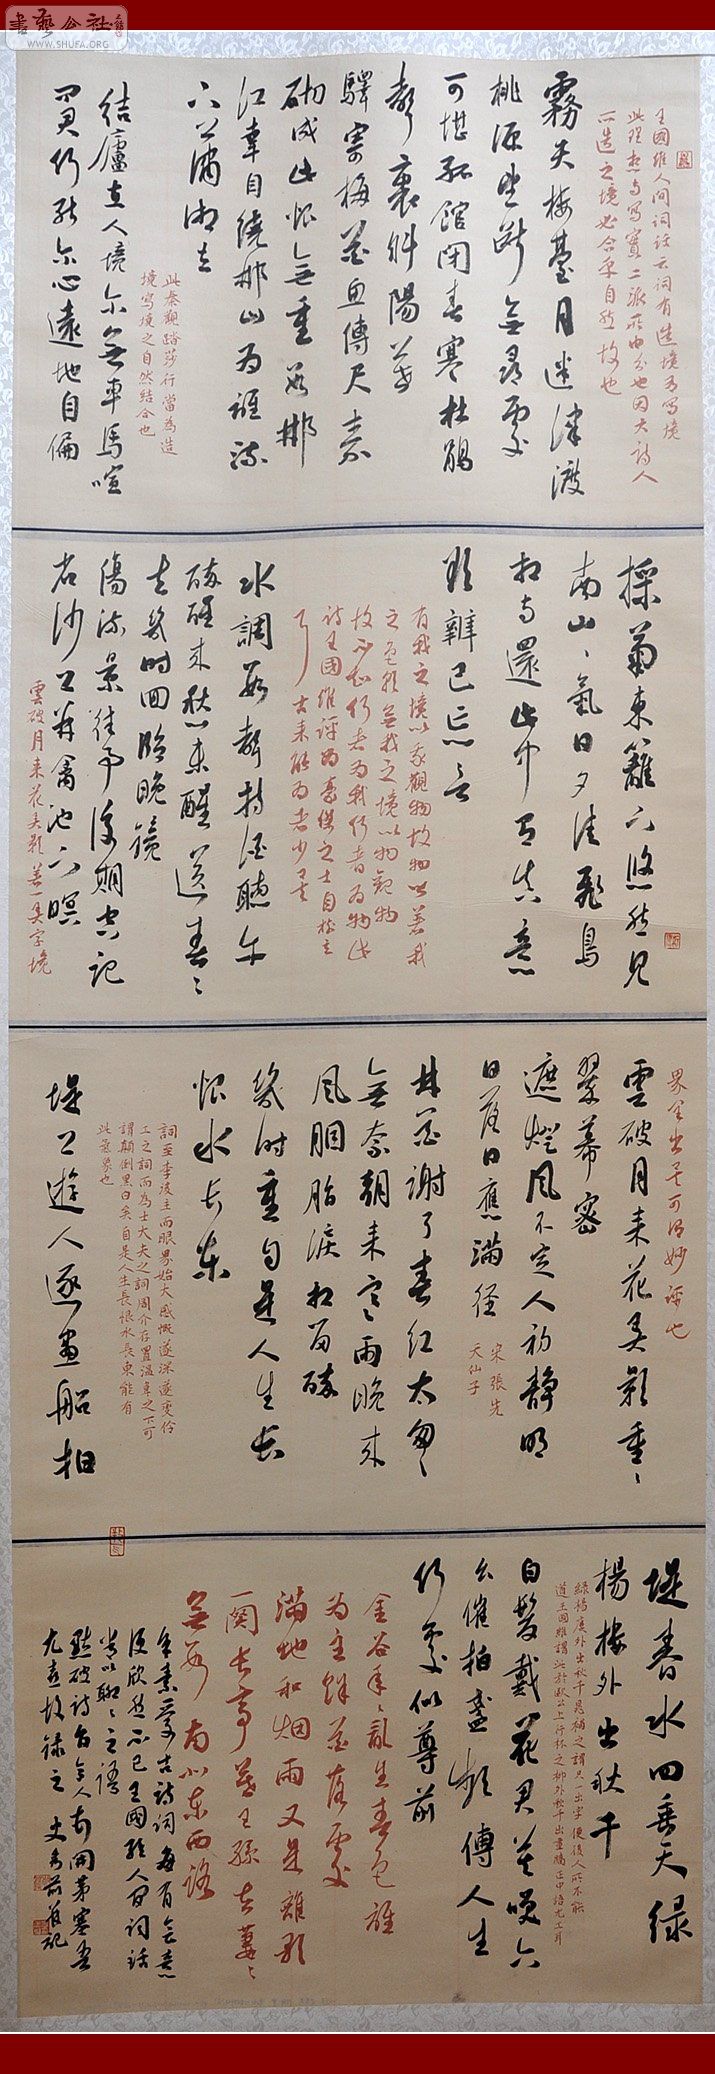 書藝公社
WWW.SHUFA.ORG
王國維人间词话云词有造境有寫境
此理想与寫實二派所由分也因大詩人
所造之境必合乎自然故也
霧失樓臺月迷津渡
桃源望断無尋處
可堪孤館閉春寒杜鵑
聲裏斜陽暮
驛寄梅花鱼傳尺素
砌成此恨無重数郴
江幸自繞郴山为誰流
下潇湘去
此秦觀踏莎行當為造
境寫境之自然結合也
結廬在人境尔無車馬喧
问君何能尔心遠地自偏
採菊東籬下悠然見
南山山氣日夕佳飛鳥
相与還此中有真意
欲辨已忘言
有我之境以我觀物故物皆著我
之色彩無我之境以物觀物
故不知何者为我何者为物此
詩王國維評为豪傑之士自樹立
耳古来能为者少矣
水調数聲持酒聽午
醉醒来愁未醒送春春
去幾时回臨晚鏡
傷流景往事後期空記
右沙上并禽池上暝
雲破月来花弄影著一弄字境
界全出矣可谓妙評也
雲破月来花弄影重重
翠幕密
遮燈風不定人初静明
日落日應滿径
宋張先
天仙子
林花謝了春红太匆匆
無奈朝来寒雨晚来
风胭脂淚相留醉
幾时重自是人生长
恨水长东
詞至李後主而眼界始大感慨遂深遂变伶
工之詞而為士大夫之詞周介存置溫韋之下可
謂顛倒黑白矣自是人生長恨水長東能有
此氣象也
堤上遊人逐畫船拍
堤春水四垂天綠
楊樓外出秋千
綠楊樓外出秋千晁補之謂只一出字便後人所不能
道王國維謂此本於正中上行杯之柳外秋千出畫牆正中語尤工耳
白髮戴花君莫笑六
幺催拍盞频傳人生
何處似尊前
金谷年年亂生春色誰
为主餘花落處
滿地和烟雨又是離歌
一闋长亭暮王孫去萋萋
無数南北东西路
余素爱古詩词每有会意
便欣然不已王國维人间词话
尝以聊聊之语
點破詩句令人有開茅塞之
尤喜故録之